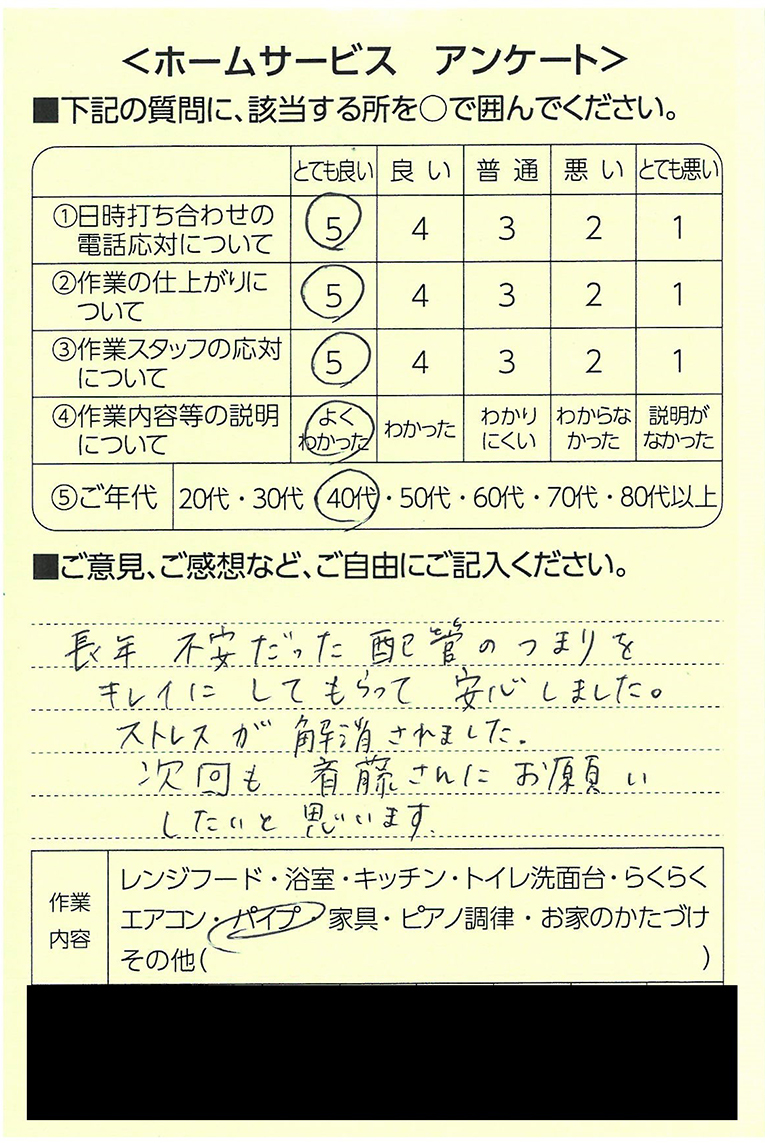 ＜ホームサービス　アンケート＞
■下記の質問に、該当する所を○で囲んでください。
とても良い 良い 普通 悪い とても悪い
①日時打ち合わせの
電話応対について 5 4 3 2 1
②作業の仕上がりに
ついて 5 4 3 2 1
③作業スタッフの応対
について 5 4 3 2 1
④作業内容等の説明
について よくわかった わかった わかりにくい わからなかった 説明がなかった
⑤ご年代 20代・30代・40代・50代・60代・70代・80代以上
■ご意見、ご感想など、ご自由にご記入ください。
長年 不安だった 配管のつまりを
キレイに してもらって 安心しました。
ストレスが 解消されました。
次回も 斎藤さんに お願い
したいと 思います。
作業
内容
レンジフード・浴室・キッチン・トイレ洗面台・らくらく
エアコン・パイプ・家具・ピアノ調律・お家のかたづけ
その他(　　　)